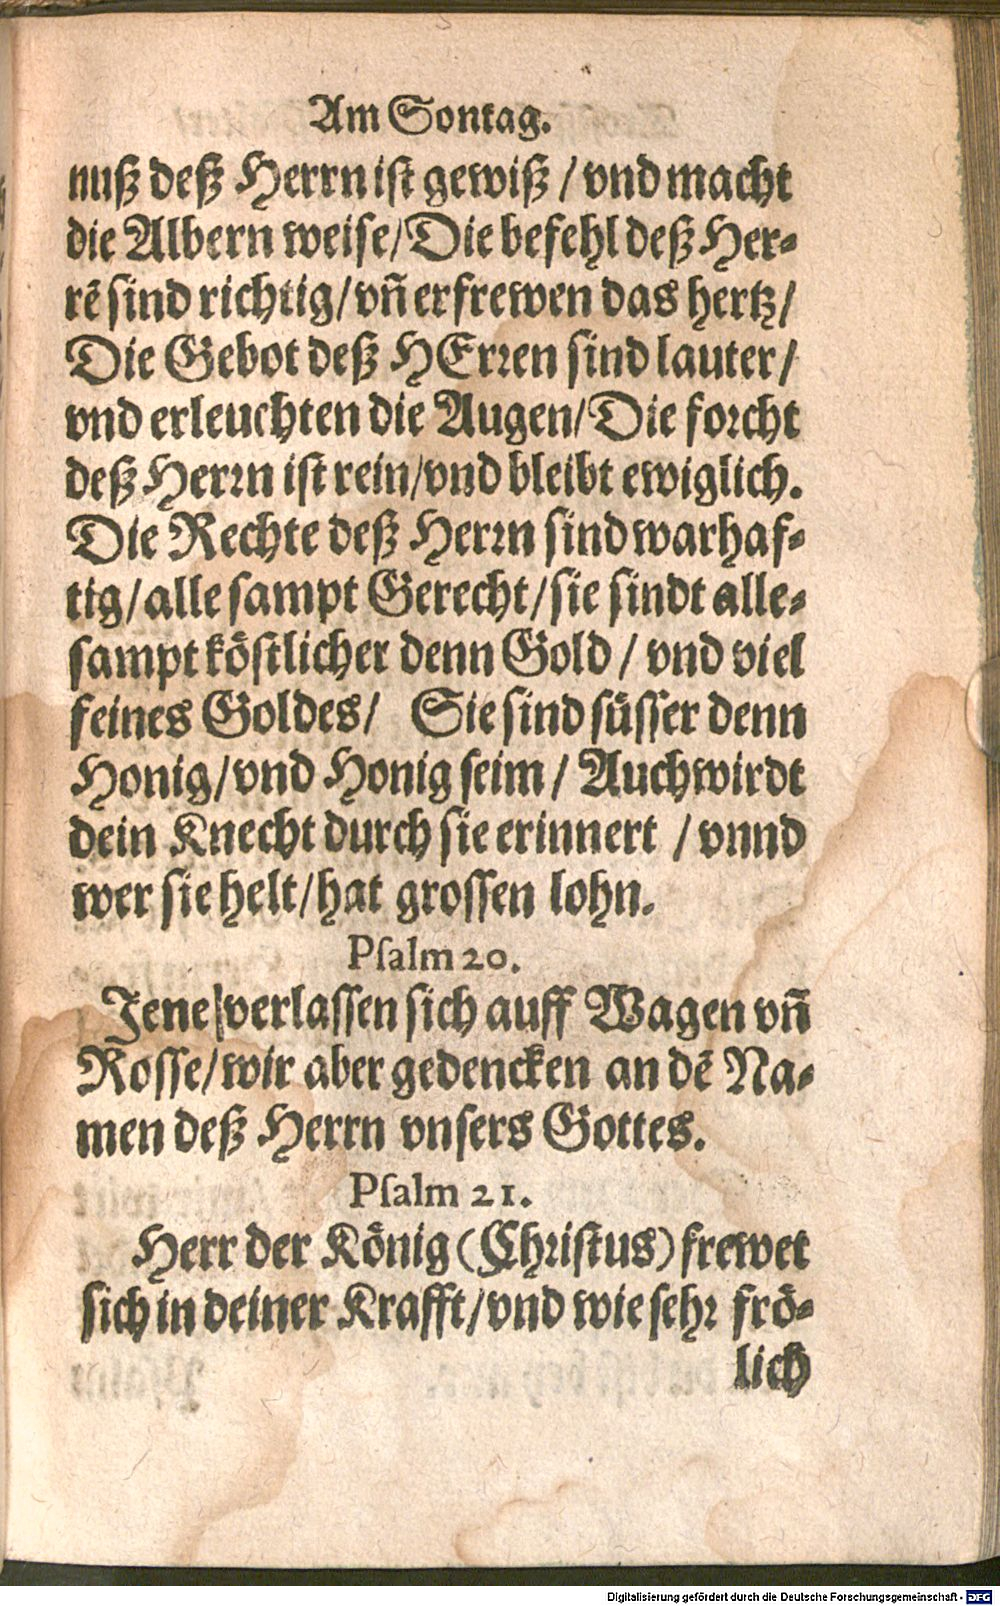 Am Sontag.
nuß deß Herrn ist gewiß / vnd macht
die Albern weise/ Die befehl deß Her-
rẽ sind richtig/ vñ erfrewen das hertz/
Die Gebot deß HErren sind lauter/
vnd erleuchten die Augen/ Die forcht
deß Herrn ist rein/ vnd bleibt ewiglich.
Die Rechte deß Herrn sind warhaf-
tig/ alle sampt Gerecht/ sie sindt alle-
sampt köstlicher denn Gold / vnd viel
feines Goldes/ Sie sind süsser denn
Honig/ vnd Honig seim / Auch wirdt
dein Knecht durch sie erinnert / vnnd
wer sie helt/ hat grossen lohn.
Psalm 20.
Jene verlassen sich auff Wagen vñ
Rosse/ wir aber gedencken an dẽ Na-
men deß Herrn vnsers Gottes.
Psalm 21.
Herr der König (Christus) frewet
sich in deiner Krafft/ vnd wie sehr frö-
lich
Digitalisierung gefördert durch die Deutsche Forschungsgemeinschaft - DFG